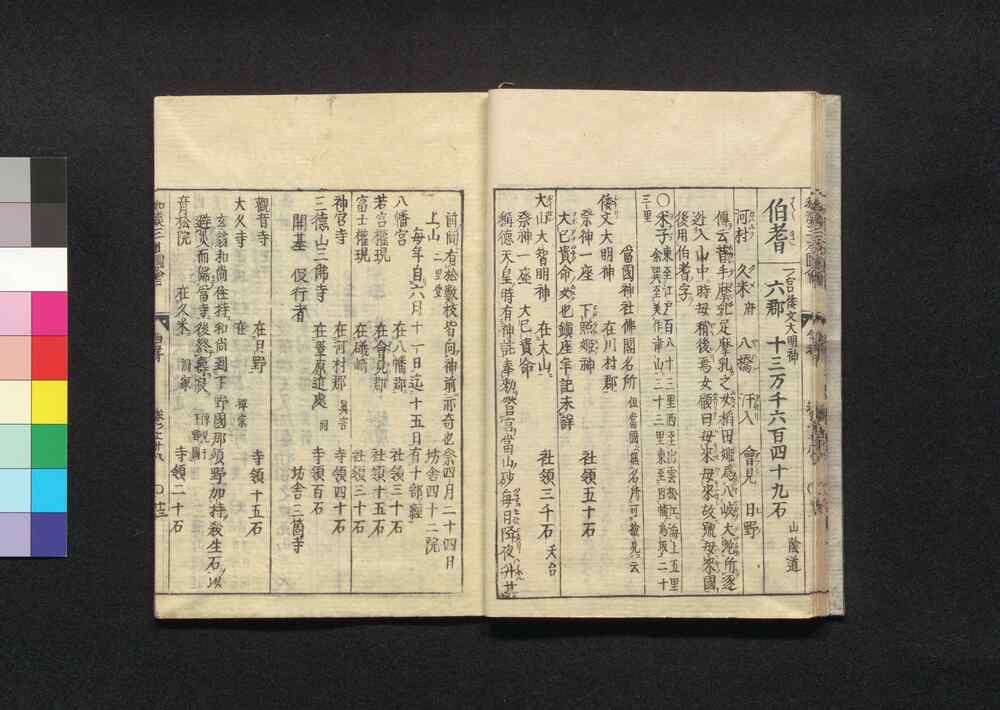 伯耆 六郡 十三万千六百四十九石 山陰道
はうき 一宮倭文大明神
河村 久米 府 八橋 汗入 會見 日野
傳云昔手摩乳足摩乳之女稲田姫為八岐大蛇所逐
迯入山中時母稍後焉女顧曰母来母来故號母来國
後用伯耆字
○米子 東至江戸百八十三里西至出雲松江海上五里
余巽至美作津山二十三里東至因幡鳥取二十
三里
當國神社佛閣名所 但當國無名所可撿見云
倭文大明神 在川村郡 社領五十石
祭神一座 下照姫神
大已貴命女也鎮座年記未詳
大山大智明神 在大山 社領三千石 天台
祭神一座 大已貴命
稱德天皇時有神託奉勅營宮當山砂毎日降夜升
前間有松數枝皆向神前亦奇也祭四月二十四日
上山 二里登 坊舎四十二院
毎年自六月十一日迄十五日有十部經
八幡宮 在八幡郡 社領三十石
若宮權現 在會見郡 社領十五石
富士權現 在礒﨑 社領三十石
神宮寺 在河村郡 真言 寺領四十石
三德山三佛寺 在葦原近處 同 寺領百石
開基 役行者 坊舎三箇寺
觀音寺 在日野 寺領十五石
大久寺 在 禪宗
玄翁和尚住持和尚到下野國那須野加持殺生石以
避災而歸當寺後終 傳見于下野國
音松院 在久米 寺領二十石